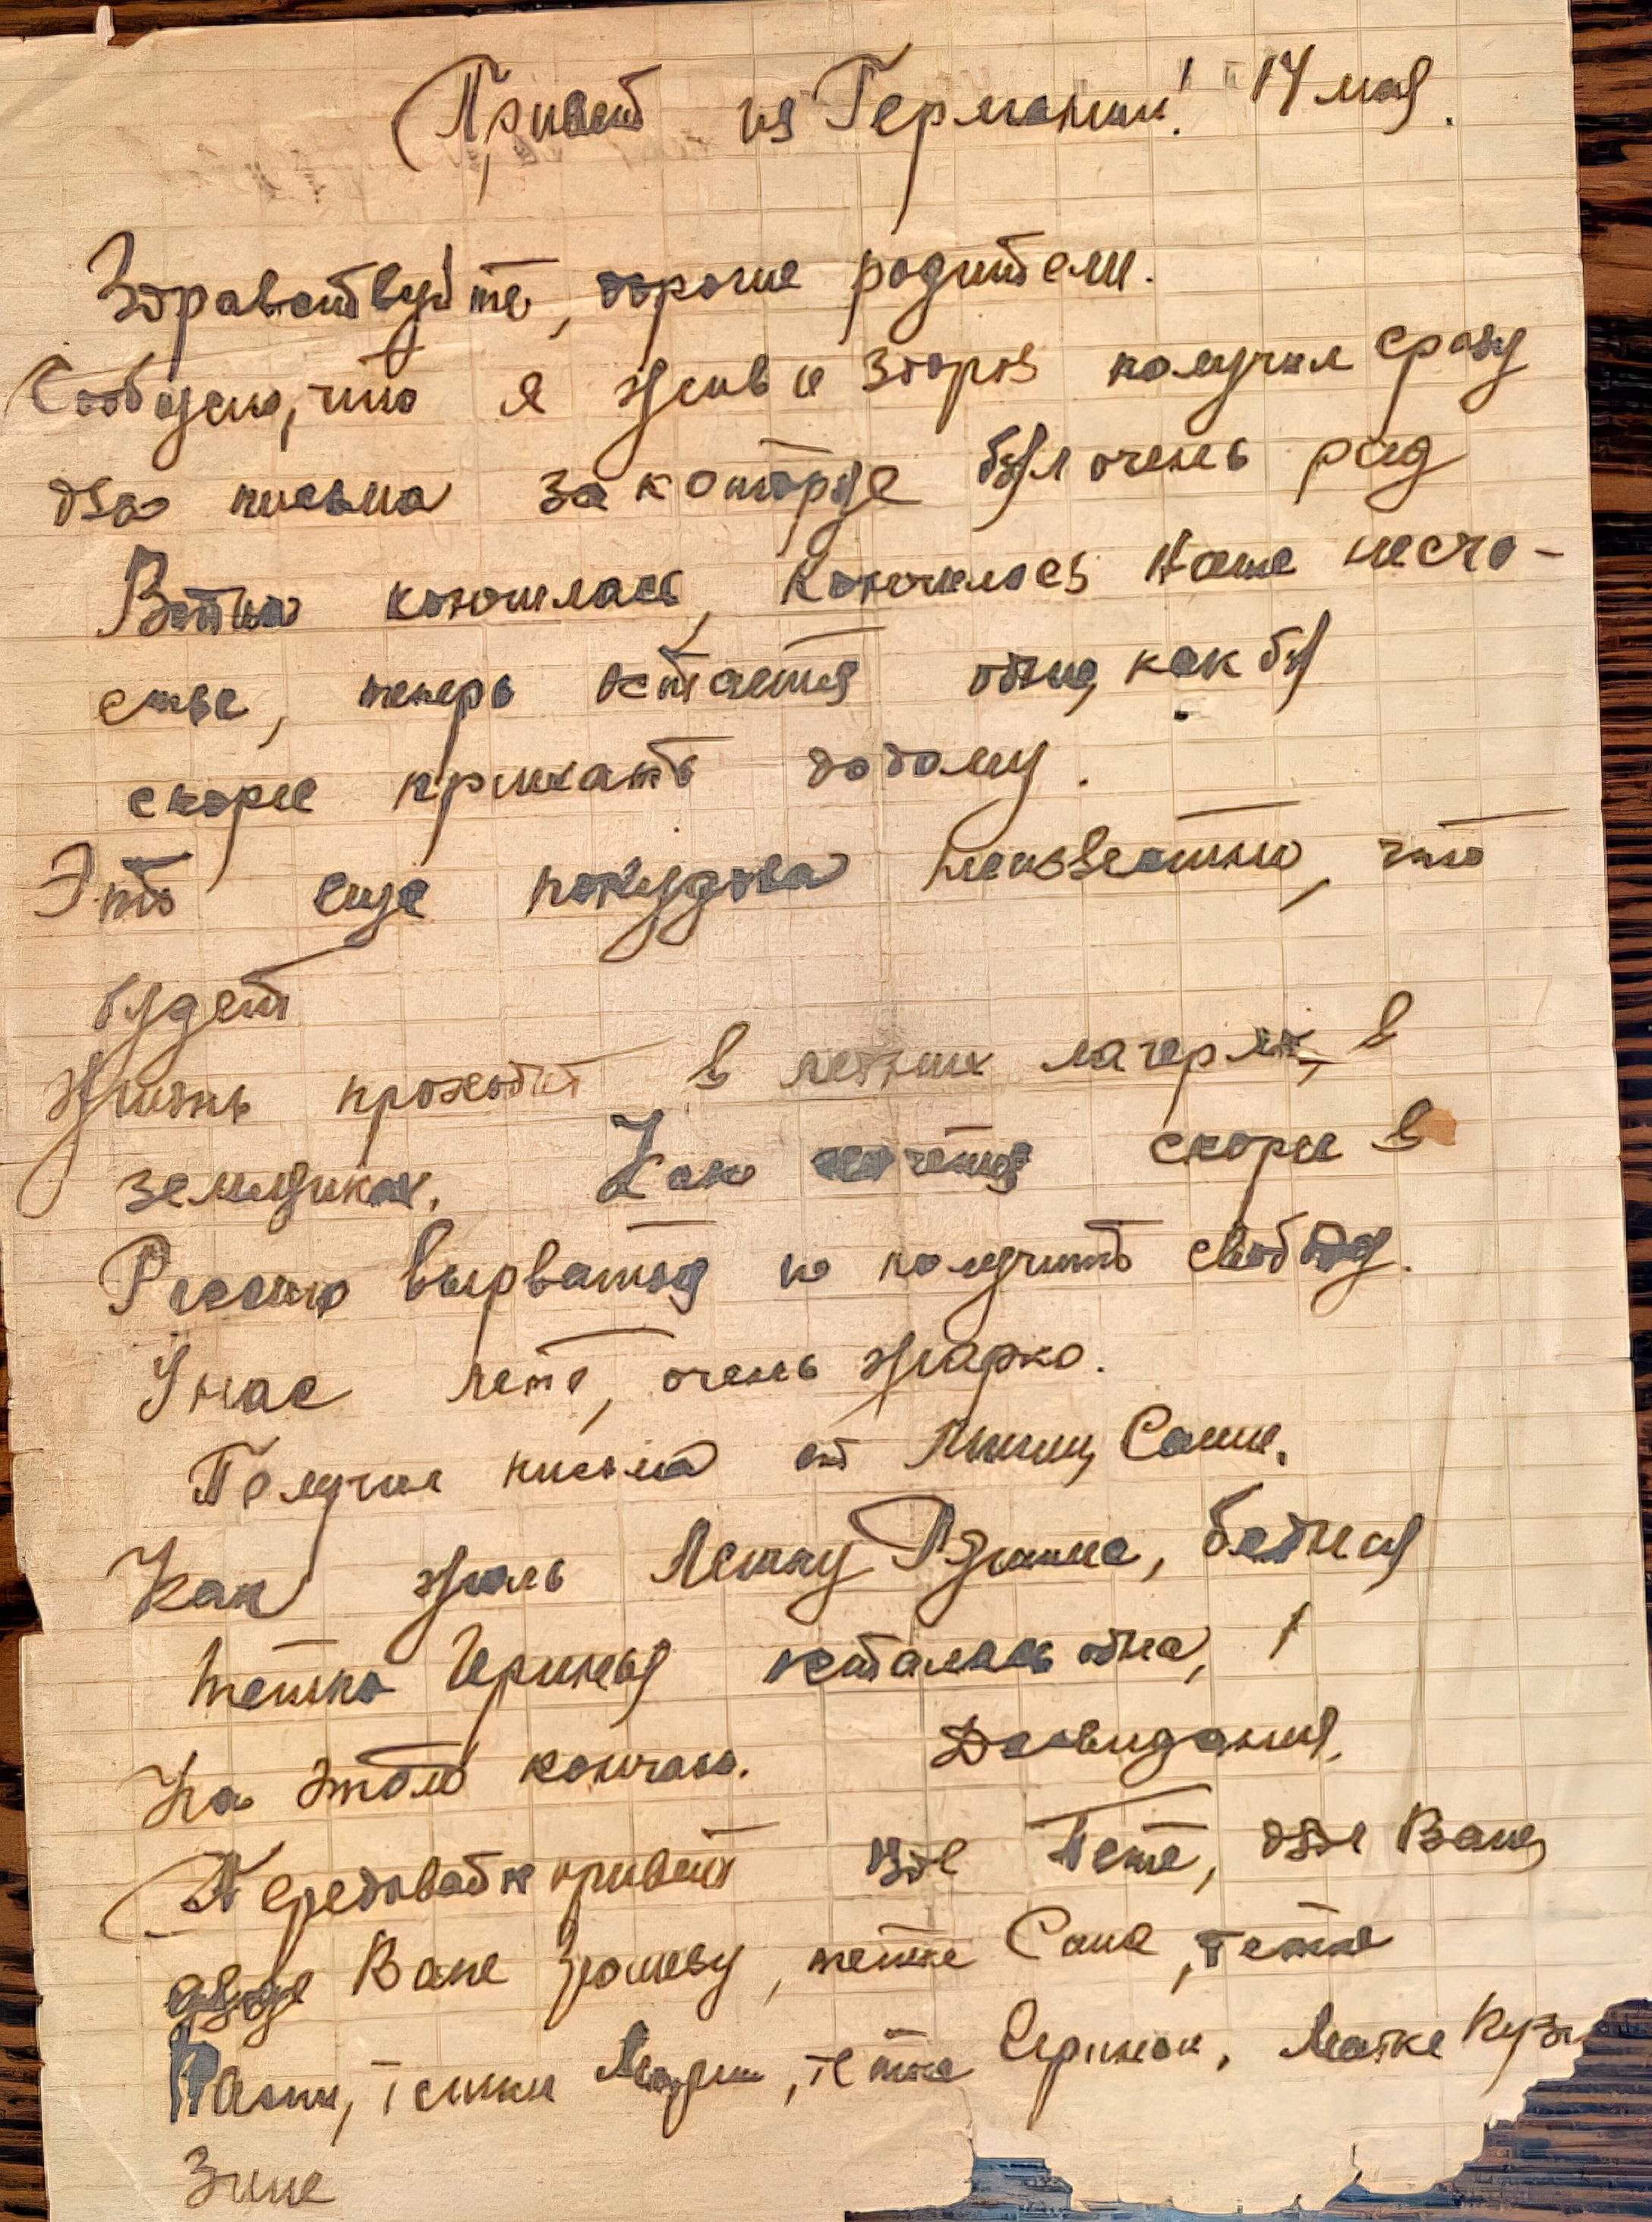 Привет из Германии! 14 мая.
Здравствуйте, дорогие родители.
Сообщаю, что я жив и здоров получил сразу
два письма за которые был очень рад
Война кончилась, кончилось наше несча-
стье, теперь остается одно, как бы
скорее приехать домой.
Это еще покудова неизвестно, что
будет
Жизнь проходит в летних лагерях, в
землянках. Как хочется скорее в
Россию вырваться и получить свободу.
У нас лето, очень жарко.
Получил письма от Саши.
Как жаль Лешку, бедная
тетка Ириня осталась одна,
На этом кончаю. Досвидания.
Передавайте привет дяде Пете, дяде Ване
дяде Ване, тетке Саше, тетке
тетки Мари, тетке Ирине,
Зине